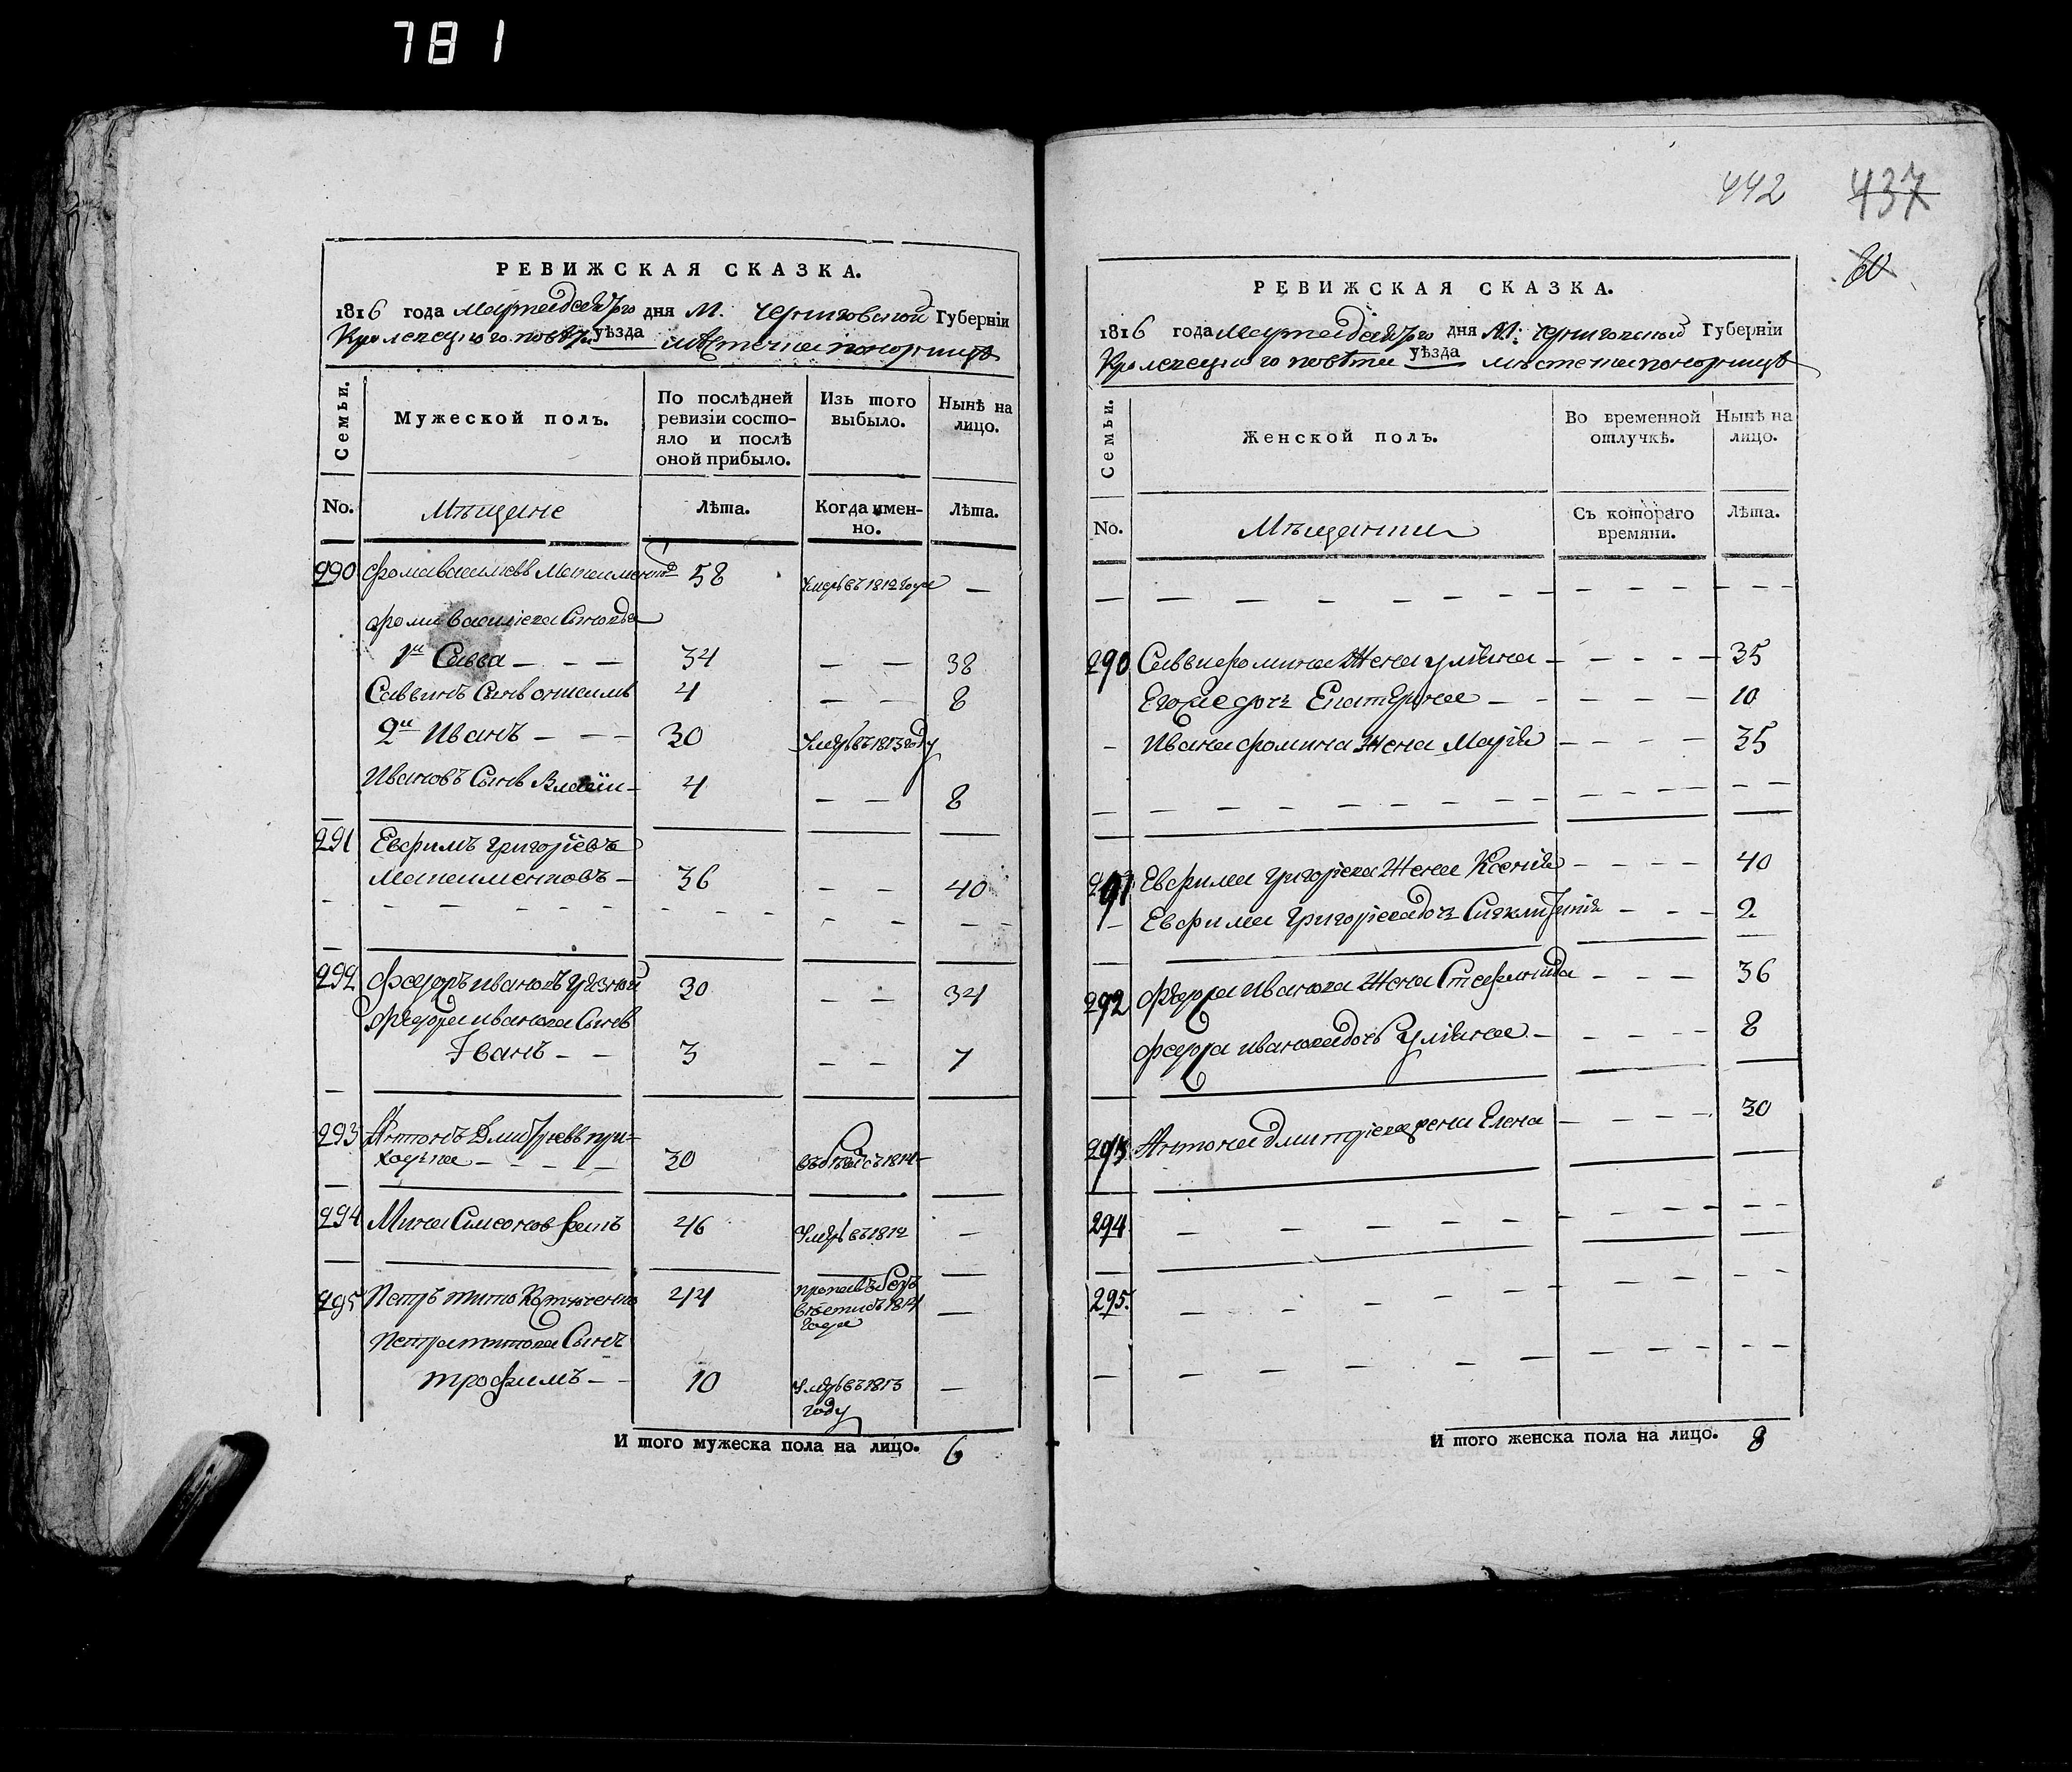 781
442
437
60
РЕВИЖСКАЯ СКАЗКА.
1816 года марта дня М: Черниговской Губерніи
Кролевецкого повѣта уѣзда мѣстечка понорницѣ
Семьи.
Мужеской полъ.
По послѣдней ревизіи состо-
яло и послѣ
оной прибыло.
Изъ того
выбыло.
Нынѣ на
лицо.
No.
Мѣщане
Лѣта.
Когда имен-
но.
Лѣта.
290 Фома васильевъ 58 умеръ въ 1812 года —
Фомы василіева Сыновья
1й Савва — — — 34 — — 38
Саввинъ Сынъ онисимъ 4 — — 8
2й Иванъ — — — 30 умеръ въ 1813 году
Ивановъ Сынъ 4 — — 8
291 Евфимъ григоріевъ
36 — — 40
292 Федоръ ивановъ 30 — — 34
Федора иванова Сынъ
Іванъ — — 3 — — 7
293 Антонъ Дмитріевъ при-
ходька — — — — — 30 1814 —
294 Мина Симонов 46 умеръ въ 1812 —
295 Петръ титов 44 пропавъ безъ
вѣсти въ 1814
года —
Петра титова Сынъ
трофимъ — — 10 умеръ въ 1813
году —
И того мужеска пола на лицо. 6
РЕВИЖСКАЯ СКАЗКА.
1816 года марта дня М: Черниговской Губерніи
Кролевецкого повѣта уѣзда мѣстечка понорницѣ
Семьи.
Женской полъ.
Во временной
отлучкѣ.
Нынѣ на
лицо.
No.
Мѣщанки
Съ котораго
времяни.
Лѣта.
290 Саввы фомина Жена уліяна — — — — — 35
Его дочь Екатерина — — — — — 10
— Ивана фомина Жена Марія — — — — 35
291 Евфима григоріева Жена Ксенія — — — — 40
— Евфима григоріева дочь — — — 2
292 Федора иванова Жена Стефанида — — — 36
Федора иванова дочь уліяна — — — — — 8
293 Антона дмитріева жена Елена — — — — 30
294
295.
И того женска пола на лицо. 8